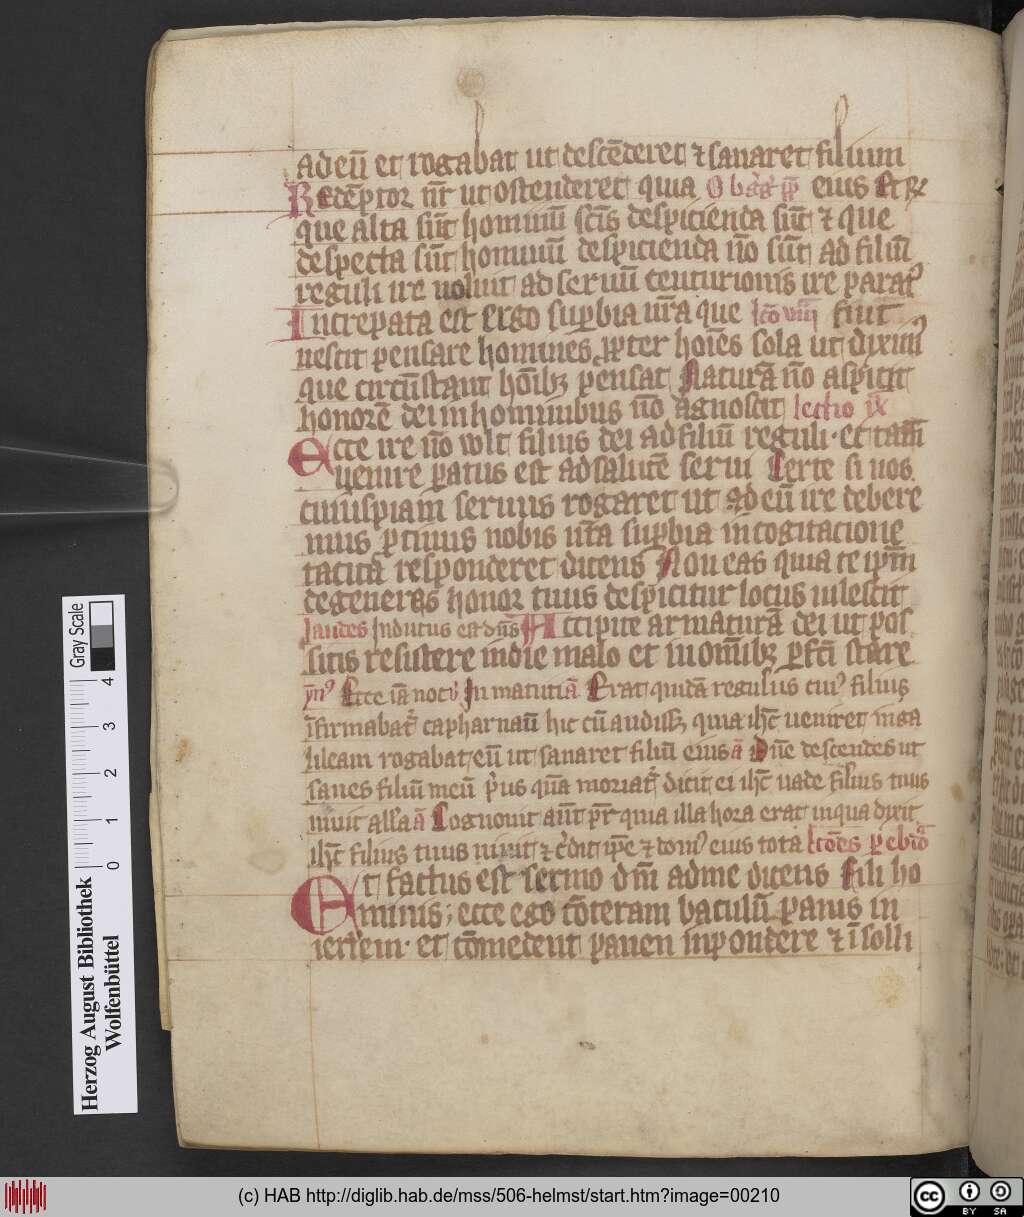 ad eū et rogabat ut descēderet ⁊ sanaret filium
Redēptor nr̄ ut ostenderet quia eius Et
que alta sūt hominū scīs despicienda sūt ⁊ que
despecta sūt hominū despicienda nō sūt ad filiū
reguli ire noluit ad seruū centurionis ire paratꝰ
Increpata est ergo suꝑbia nr̄a que lc̄o viii fuit
nescit pensare homines ꝓpter hoīes sola ut diximꝰ
que circūstant hoībꝫ pensat Naturā nō aspicit
honorē dei in hominibus nō agnoscit lectio ix
Ecce ire nō vult filius dei ad filiū reguli · et tam̄
uenire ꝑatus est ad salutē serui Certe si nos
cuiuspiam seruus rogaret ut ad eū ire debere
mus ꝓtinus nobis nr̄a suꝑbia in cogitacione
tacita responderet dicens Non eas quia te ipm̄
degeneras honor tuus despicitur locus uilescit
laudes Indutus est dn̄s Accipite armaturā dei ut pos
sitis resistere in die malo et in om̄ibꝫ ꝑfc̄i stare
ymꝰ Ecce iā noct In matuti ā Erat quidā regulus cuiꝰ filiꝰ
īfirmabat᷑ capharnaū hic cū audiss; quia ih̄c ueniret in ga
lileam rogabat eū ut sanaret filiū eius ā Dn̄e descendes ut
sanes filiū meū pͥus qͣm moriat᷑ dicit ei ih̄c uade filius tuus
uiuit all̄a ā Cognouit aūt pr̄ quia illa hora erat in qua dixit
ih̄c filius tuus uiuit ⁊ cͬdit ip̄e ⁊ domꝰ eius tota lc̄ōes ꝑ ebdō
Et factus est sermo dn̄i ad me dicens Fili ho
minis ; ecce ego cōteram baculū panis in
ierl̄em · et cōmedent panen in pondere ⁊ ī solli
Gray Scale
4
3
2
1
0
Herzog August Bibliothek
Wolfenbüttel
(c) HAB http://diglib.hab.de/mss/506-helmst/start.htm?image=00210
cc BY SA